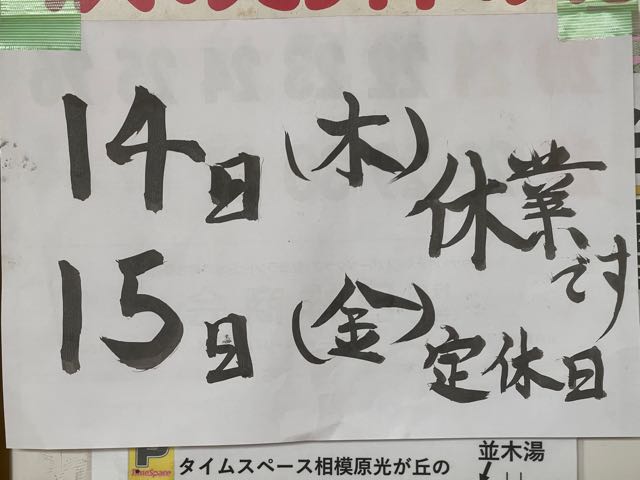 14日(木)休業です
15日(金)定休日
P
TimeSpace
タイムスペース相模原光が丘の
並木湯